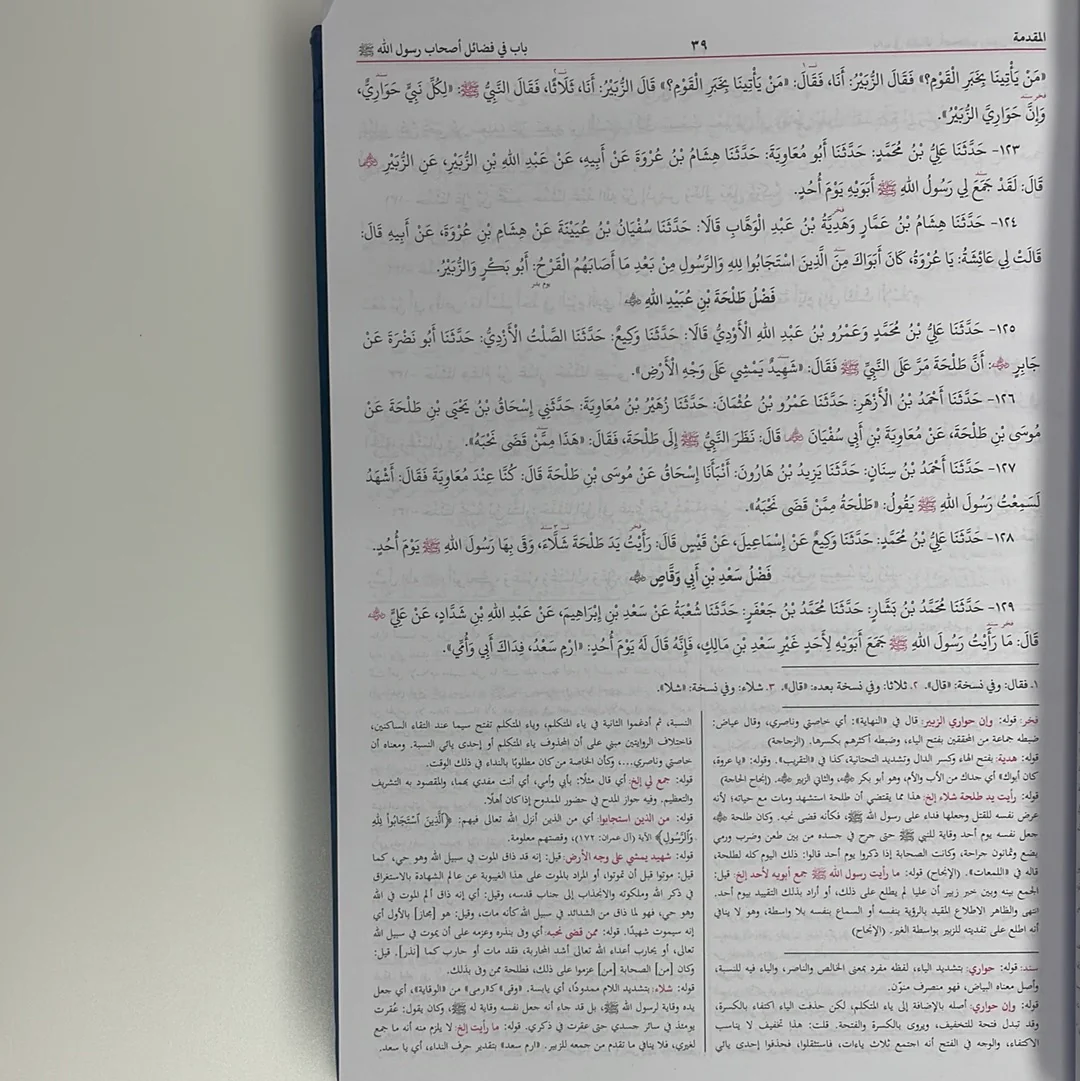 المقدمة
٣٩
باب في فضائل أصحاب رسول الله ﷺ
«مَنْ يَأْتِينَا بِخَبَرِ الْقَوْمِ؟» فَقَالَ الزُّبَيْرُ: أَنَا، فَقَالَ١: «مَنْ يَأْتِينَا بِخَبَرِ الْقَوْمِ؟» قَالَ الزُّبَيْرُ: أَنَا، ثَلَاثًا٢، فَقَالَ النَّبِيُّ ﷺ: «لِكُلِّ نَبِيٍّ حَوَارِيٌّ،
وَإِنَّ حَوَارِيَّ الزُّبَيْرُ».
١٢٣- حَدَّثَنَا عَلِيُّ بْنُ مُحَمَّدٍ: حَدَّثَنَا أَبُو مُعَاوِيَةَ: حَدَّثَنَا هِشَامُ بْنُ عُرْوَةَ عَنْ أَبِيهِ، عَنْ عَبْدِ اللهِ بْنِ الزُّبَيْرِ، عَنِ الزُّبَيْرِ
قَالَ: لَقَدْ جَمَعَ لِي رَسُولُ اللهِ ﷺ أَبَوَيْهِ يَوْمَ أُحُدٍ.
١٢٤- حَدَّثَنَا هِشَامُ بْنُ عَمَّارٍ وَهَدِيَّةُ بْنُ عَبْدِ الْوَهَّابِ قَالَا: حَدَّثَنَا سُفْيَانُ بْنُ عُيَيْنَةَ عَنْ هِشَامِ بْنِ عُرْوَةَ، عَنْ أَبِيهِ قَالَ:
قَالَتْ لِي عَائِشَةُ: يَا عُرْوَةُ، كَانَ أَبَوَاكَ مِنَ الَّذِينَ اسْتَجَابُوا لِلهِ وَالرَّسُولِ مِنْ بَعْدِ مَا أَصَابَهُمُ الْقَرْحُ: أَبُو بَكْرٍ وَالزُّبَيْرُ.
فَضْلُ طَلْحَةَ بْنِ عُبَيْدِ اللهِ
١٢٥- حَدَّثَنَا عَلِيُّ بْنُ مُحَمَّدٍ وَعَمْرُو بْنُ عَبْدِ اللهِ الْأَوْدِيُّ قَالَا: حَدَّثَنَا وَكِيعٌ: حَدَّثَنَا الصَّلْتُ الْأَزْدِيُّ: حَدَّثَنَا أَبُو نَضْرَةَ عَنْ
جَابِرٍ: أَنَّ طَلْحَةَ مَرَّ عَلَى النَّبِيِّ ﷺ فَقَالَ: «شَهِيدٌ يَمْشِي عَلَى وَجْهِ الْأَرْضِ».
١٢٦- حَدَّثَنَا أَحْمَدُ بْنُ الْأَزْهَرِ: حَدَّثَنَا عَمْرُو بْنُ عُثْمَانَ: حَدَّثَنَا زُهَيْرُ بْنُ مُعَاوِيَةَ: حَدَّثَنِي إِسْحَاقُ بْنُ يَحْيَى بْنِ طَلْحَةَ عَنْ
مُوسَى بْنِ طَلْحَةَ، عَنْ مُعَاوِيَةَ بْنِ أَبِي سُفْيَانَ قَالَ: نَظَرَ النَّبِيُّ ﷺ إِلَى طَلْحَةَ، فَقَالَ: «هَذَا مِمَّنْ قَضَى نَحْبَهُ».
١٢٧- حَدَّثَنَا أَحْمَدُ بْنُ سِنَانٍ: حَدَّثَنَا يَزِيدُ بْنُ هَارُونَ: أَنْبَأَنَا إِسْحَاقُ عَنْ مُوسَى بْنِ طَلْحَةَ قَالَ: كُنَّا عِنْدَ مُعَاوِيَةَ فَقَالَ: أَشْهَدُ
لَسَمِعْتُ رَسُولَ اللهِ ﷺ يَقُولُ: «طَلْحَةُ مِمَّنْ قَضَى نَحْبَهُ».
١٢٨- حَدَّثَنَا عَلِيُّ بْنُ مُحَمَّدٍ: حَدَّثَنَا وَكِيعٌ عَنْ إِسْمَاعِيلَ، عَنْ قَيْسٍ قَالَ: رَأَيْتُ يَدَ طَلْحَةَ شَلَّاءَ٣، وَقَى بِهَا رَسُولَ اللهِ ﷺ يَوْمَ أُحُدٍ.
فَضْلُ سَعْدِ بْنِ أَبِي وَقَّاصٍ
١٢٩- حَدَّثَنَا مُحَمَّدُ بْنُ بَشَّارٍ: حَدَّثَنَا مُحَمَّدُ بْنُ جَعْفَرٍ: حَدَّثَنَا شُعْبَةُ عَنْ سَعْدِ بْنِ إِبْرَاهِيمَ، عَنْ عَبْدِ اللهِ بْنِ شَدَّادٍ، عَنْ عَلِيٍّ
قَالَ: مَا رَأَيْتُ رَسُولَ اللهِ ﷺ جَمَعَ أَبَوَيْهِ لِأَحَدٍ غَيْرِ سَعْدِ بْنِ مَالِكٍ، فَإِنَّهُ قَالَ لَهُ يَوْمَ أُحُدٍ: «ارْمِ سَعْدُ، فِدَاكَ أَبِي وَأُمِّي».
١. فقال: وفي نسخة: «قال». ٢. ثلاثا: وفي نسخة بعده: «قال». ٣. شلاء: وفي نسخة: «شلا».
فخر: قوله: وإن حواري الزبير: قال في «النهاية»: أي خاصتي وناصري، وقال عياض:
ضبطه جماعة من المحققين بفتح الياء، وضبطه أكثرهم بكسرها. (الزجاجة)
قوله: هدية: بفتح الهاء وكسر الدال وتشديد التحتانية، كذا في «التقريب». وقوله: «يا عروة،
كان أبواك» أي جداك من الأب والأم، وهو أبو بكر، والثاني الزبير. (إنجاح الحاجة)
قوله: رأيت يد طلحة شلاء إلخ: هذا مما يقتضي أن طلحة استشهد ومات مع حياته؛ لأنه
عرض نفسه للقتل وجعلها فداء على رسول الله ﷺ، فكأنه قضى نحبه. وكان طلحة
جعل نفسه يوم أحد وقاية للنبي ﷺ حتى جرح في جسده من بين طعن وضرب ورمي
بضع وثمانون جراحة، وكانت الصحابة إذا ذكروا يوم أحد قالوا: ذلك اليوم كله لطلحة،
قاله في «اللمعات». (الإنجاح) قوله: ما رأيت رسول الله ﷺ جمع أبويه لأحد إلخ: قيل:
الجمع بينه وبين خبر زبير أن عليا لم يطلع على ذلك، أو أراد بذلك التقييد بيوم أحد.
انتهى والظاهر الاطلاع المقيد بالرؤية بنفسه أو السماع بنفسه بلا واسطة، وهو لا ينافي
أنه اطلع على تفديته للزبير بواسطة الغير. (الإنجاح)
سند: قوله: حواري: بتشديد الياء، لفظه مفرد بمعنى الخالص والناصر، والياء فيه للنسبة،
وأصل معناه البياض، فهو منصرف منوّن.
قوله: وإن حواري: أصله بالإضافة إلى ياء المتكلم، لكن حذفت الياء اكتفاء بالكسرة،
وقد تبدل فتحة للتخفيف، ويروى بالكسرة والفتحة. قلت: هذا تخفيف لا يناسب
الاكتفاء، والوجه في الفتح أنه اجتمع ثلاث ياءات، فاستثقلوا، فحذفوا إحدى يائي
النسبة، ثم أدغموا الثانية في ياء المتكلم، وياء المتكلم تفتح سيما عند التقاء الساكنين،
فاختلاف الروايتين مبني على أن المحذوف ياء المتكلم أو إحدى يائي النسبة. ومعناه أن
خاصتي وناصري...، وكأن الخاصة من كان مطلوبًا بالنداء في ذلك الوقت.
قوله: جمع لي إلخ: أي قال مثلًا: بأبي وأمي، أي أنت مفدي بهما، والمقصود به التشريف
والتعظيم. وفيه جواز المدح في حضور للممدوح إذا كان أهلًا.
قوله: من الذين استجابوا: أي من الذين أنزل الله تعالى فيهم: ﴿الَّذِينَ اسْتَجَابُوا لِلَّهِ
وَالرَّسُولِ﴾ الآية (آل عمران: ١٧٢)، وقصتهم معلومة.
قوله: شهيد يمشي على وجه الأرض: قيل: إنه قد ذاق الموت في سبيل الله وهو حي، كما
قيل: موتوا قبل أن تموتوا، أو المراد بالموت على هذا الغيبوبة عن عالم الشهادة بالاستغراق
في ذكر الله وملكوته والانجذاب إلى جناب قدسه، وقيل: أي إنه ذاق ألم الموت في الله
وهو حي، فهو لما ذاق من الشدائد في سبيل الله كأنه مات، وقيل: هو [مجاز] بالأول أي
إنه سيموت شهيدًا. قوله: ممن قضى نحبه: أي وفى بنذره وعزمه على أن يموت في سبيل الله
تعالى، أو يحارب أعداء الله تعالى أشد المحاربة، فقد مات أو حارب كما [نذر]. قيل:
وكان [من] الصحابة [من] عزموا على ذلك، فطلحة ممن وفى بذلك.
قوله: شلاء: بتشديد اللام ممدودًا، أي يابسة. «وقى» كـ«رمى» من «الوقاية»، أي جعل
يده وقاية لرسول الله ﷺ، بل قد جاء أنه جعل نفسه وقاية له ﷺ، وكان يقول: عُقرت
يومئذ في سائر جسدي حتى عقرت في ذكري. قوله: ما رأيت إلخ: لا يلزم منه أنه ما جمع
لغيري، فلا ينافي ما تقدم من جمعه للزبير. «ارم سعد» بتقدير حرف النداء، أي يا سعد.